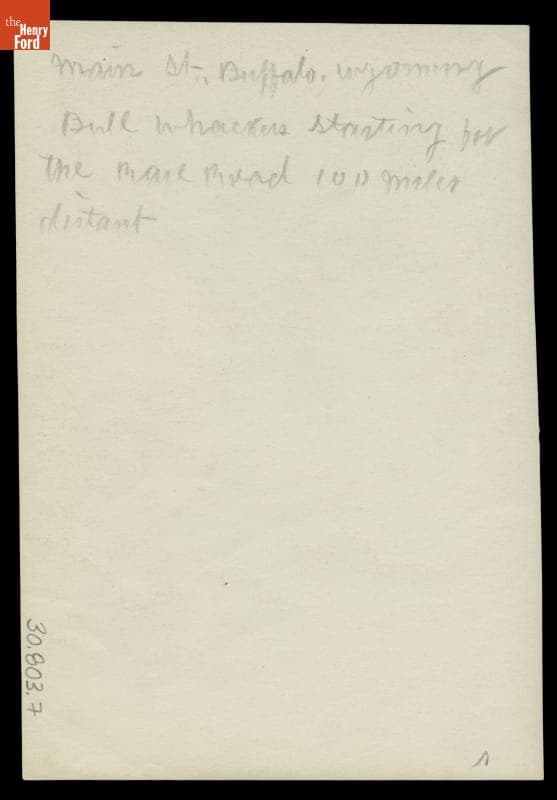 the
Henry
Ford
Main St., Buffalo, Wyoming
Bull whackers starting for
the Road 100 miles
distant
30.803.7